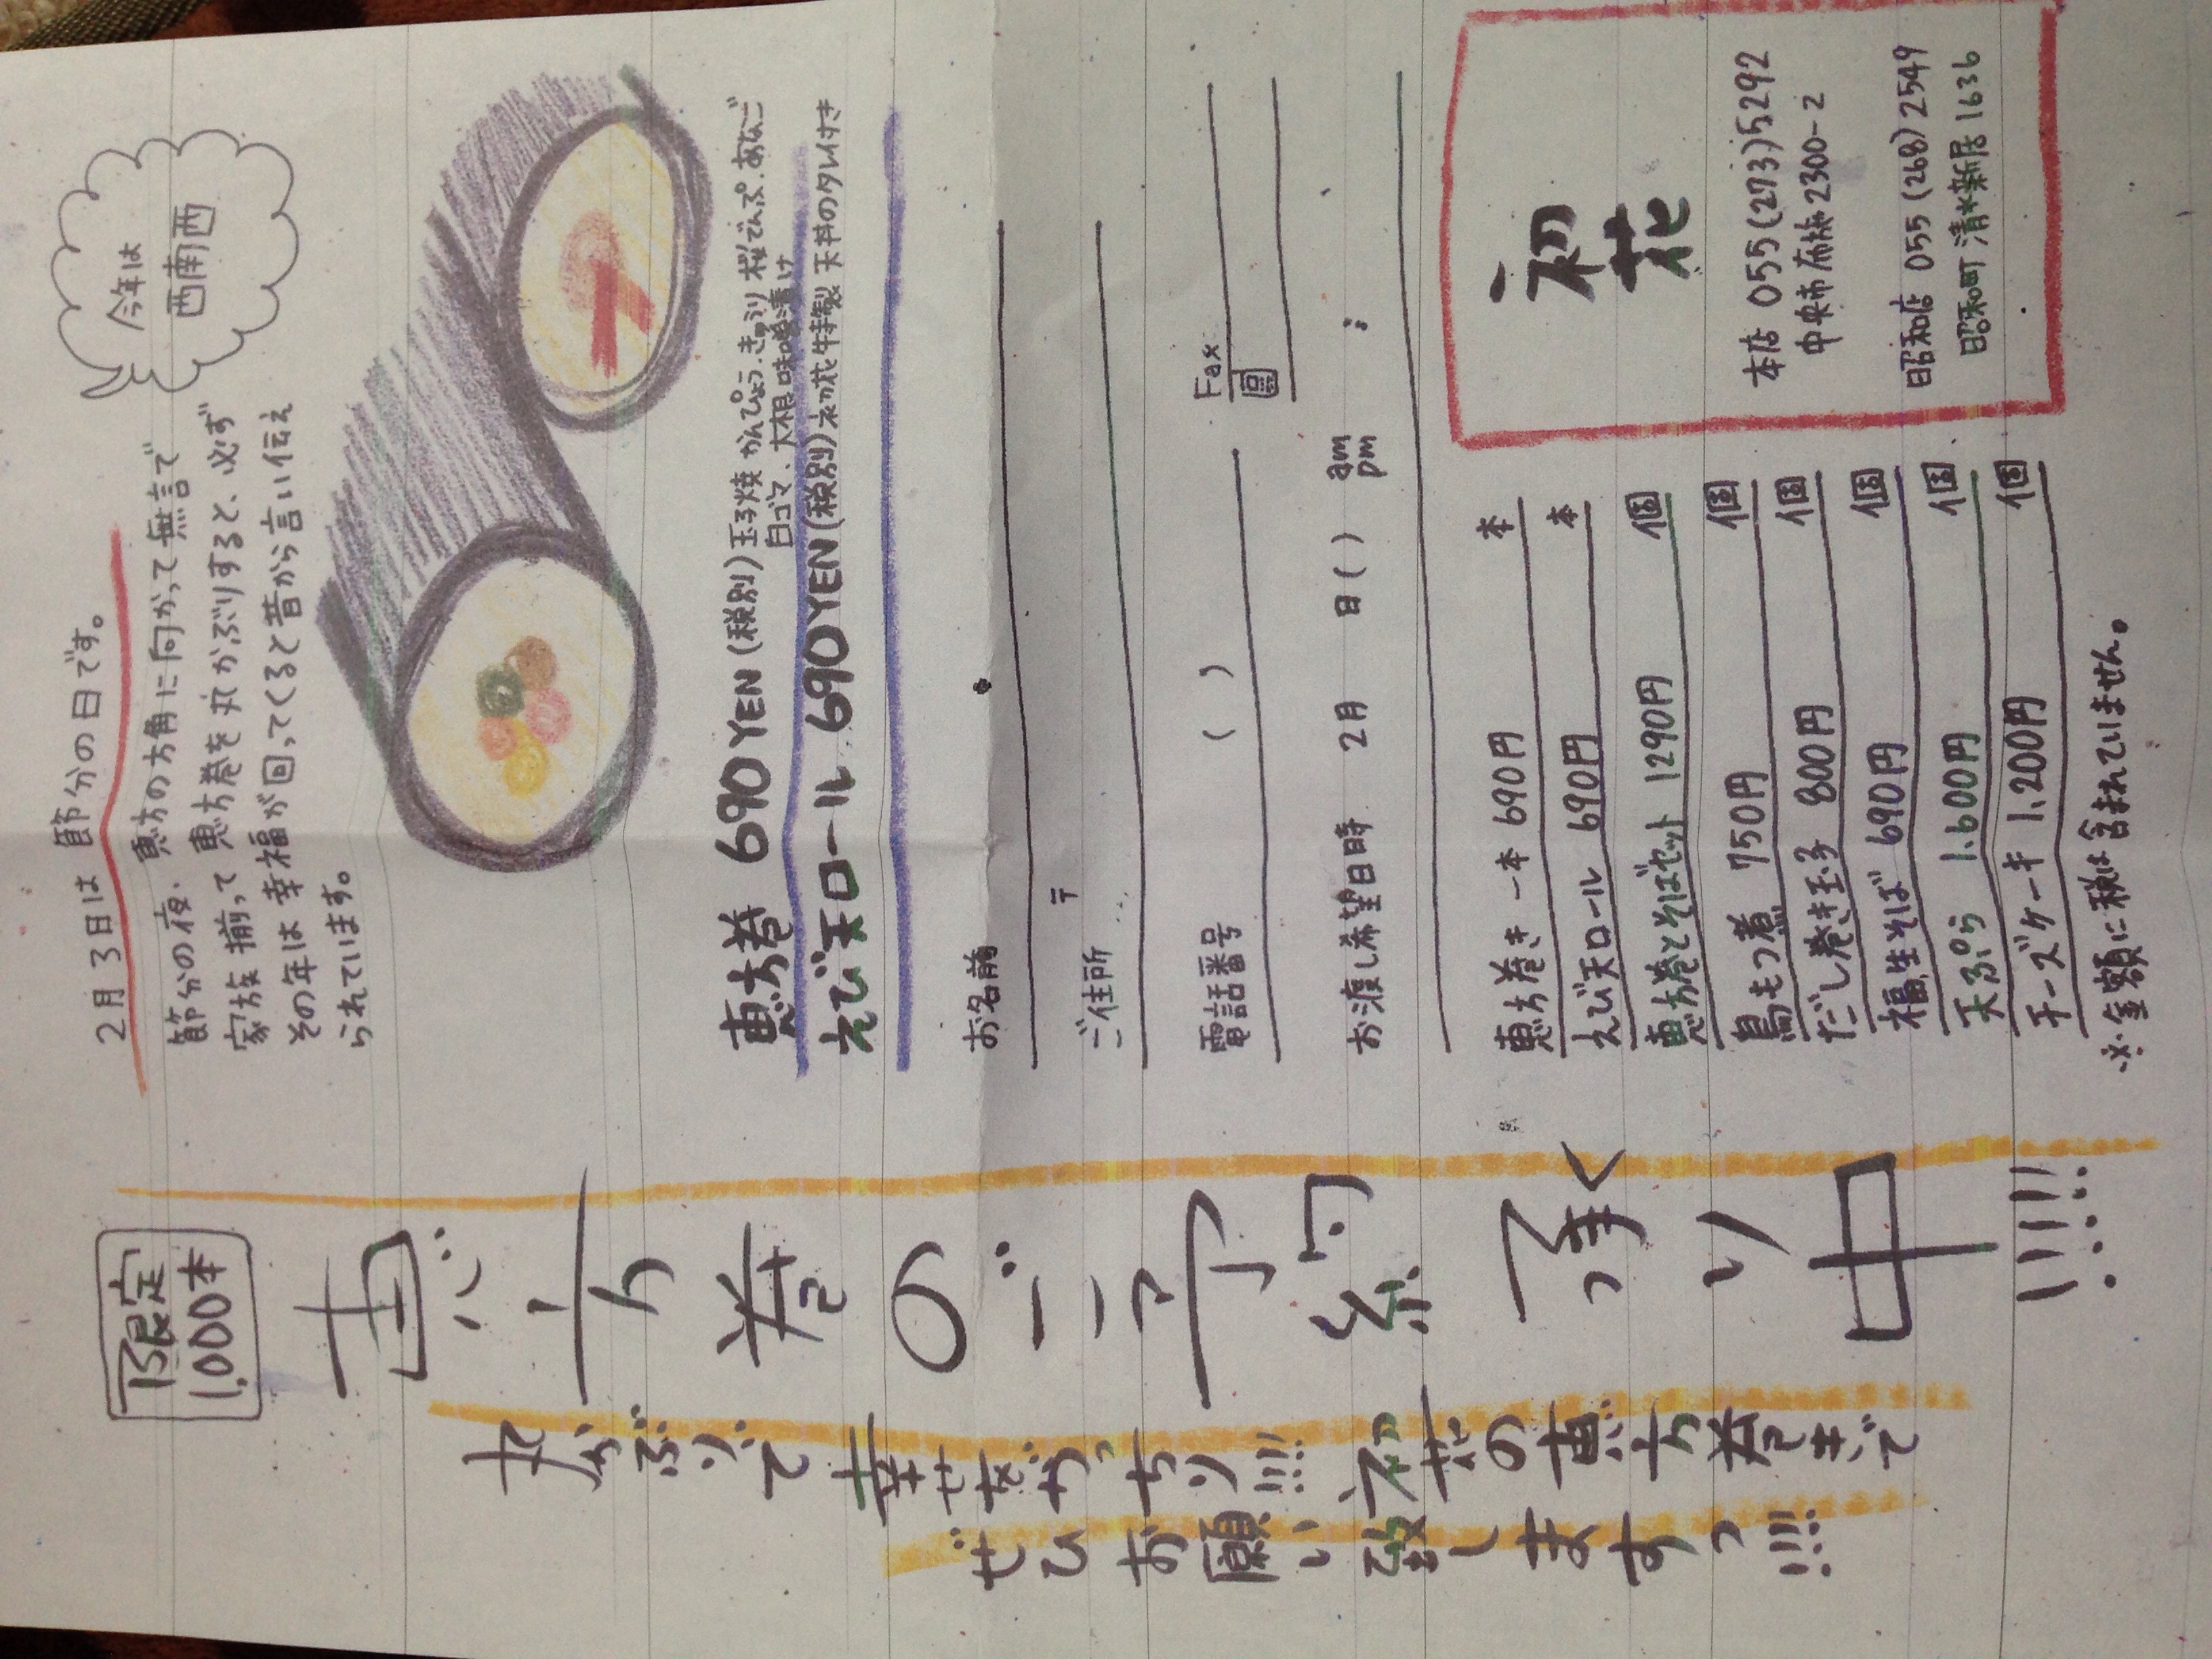 限定
1,000本
恵方巻のご予約承り中!!!!
丸かぶりで幸せをがっちり!!!! 初花の恵方巻きで
ぜひお願い致しますっ!!!!
2月3日は節分の日です。
節分の夜、恵方の方角に向かって無言で
家族揃って恵方巻を丸かぶりすると、必ず
その年は幸福が回ってくると昔から言い伝え
られています。
今年は
西南西
恵方巻 690YEN(税別)玉子焼 かんぴょう.きゅうり 桜でんぷ.あなご
白ゴマ、大根味噌漬け
えび天ロール 690YEN(税別)初花特製 天丼のタレ付き
お名前
ご住所 〒
電話番号 ( ) Fax
お渡し希望日時 2月 日( ) am pm :
恵方巻き 一本 690円 本
えび天ロール 690円 本
恵方巻とそばセット 1290円 個
鳥もつ煮 750円 個
だし巻き玉子 800円 個
福生そば 690円 個
天ぷら 1.600円 個
チーズケーキ 1.200円 個
※金額に税は含まれていません。
初花
本店 055(273)5292
中央市布施2300-2
昭和店 055(268)2549
昭和町清水新居1636